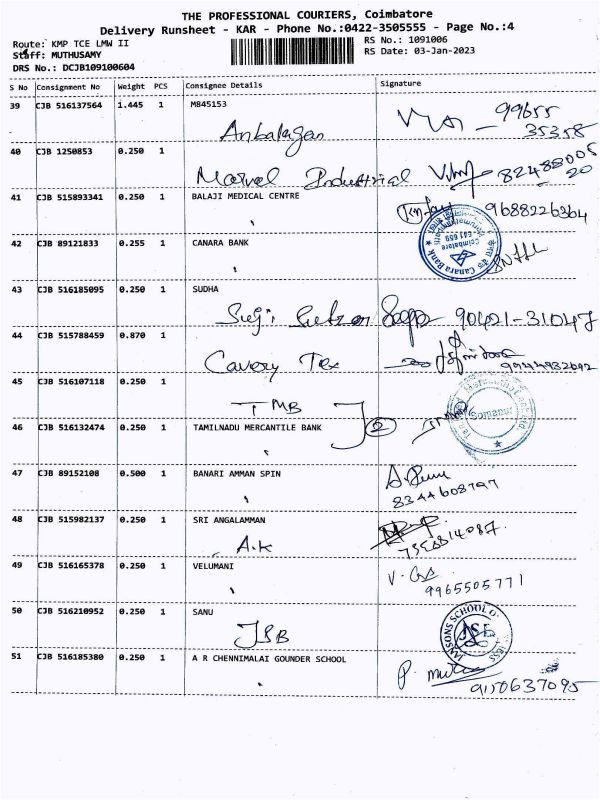 THE PROFESSIONAL COURIERS, Coimbatore
Delivery Runsheet - KAR - Phone No.:0422-3505555 - Page No.:4
Route: KMP TCE LMW II
Staff: MUTHUSAMY
DRS No.: DCJB109100604
RS No.: 1091006
RS Date: 03-Jan-2023
S No Consignment No Weight PCS Consignee Details Signature
39 CJB 516137564 1.445 1 M845153
Anbalagan 99655
35358
40 CJB 1250853 0.250 1
Marvel Industrial
41 CJB 515893341 0.250 1 BALAJI MEDICAL CENTRE
9688226364
42 CJB 89121833 0.255 1 CANARA BANK
Canara Bank
Coimbatore
641 659
43 CJB 516185095 0.250 1 SUDHA
90421-31047
44 CJB 515788459 0.870 1
Cavery Tex
45 CJB 516107118 0.250 1
TMB
Somanur
46 CJB 516132474 0.250 1 TAMILNADU MERCANTILE BANK
2
47 CJB 89152108 0.500 1 BANARI AMMAN SPIN
8344608797
48 CJB 515982137 0.250 1 SRI ANGALAMMAN
A.K
49 CJB 516165378 0.250 1 VELUMANI
9965505771
50 CJB 516210952 0.250 1 SANU
JSB
51 CJB 516185380 0.250 1 A R CHENNIMALAI GOUNDER SCHOOL
9150637095